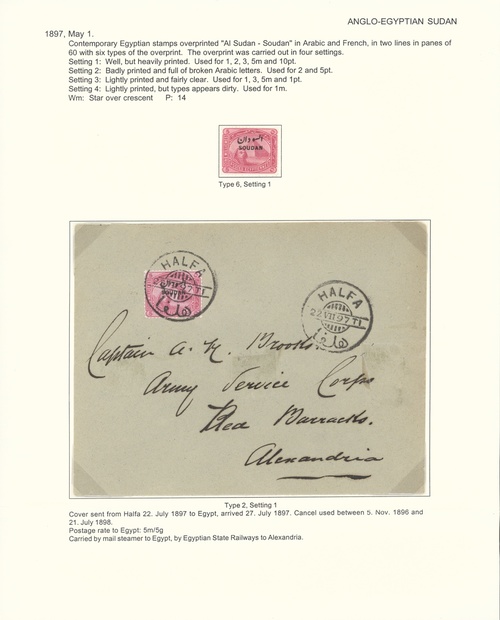 ANGLO-EGYPTIAN SUDAN
1897, May 1.
Contemporary Egyptian stamps overprinted "Al Sudan - Soudan" in Arabic and French, in two lines in panes of
60 with six types of the overprint. The overprint was carried out in four settings.
Setting 1: Well, but heavily printed. Used for 1, 2, 3, 5m and 10pt.
Setting 2: Badly printed and full of broken Arabic letters. Used for 2 and 5pt.
Setting 3: Lightly printed and fairly clear. Used for 1, 3, 5m and 1pt.
Setting 4: Lightly printed, but types appears dirty. Used for 1m.
Wm: Star over crescent P: 14
السودان
SOUDAN
Type 6, Setting 1
HALFA
22 VII 97 T1
حلفا
HALFA
22 VII 97 T1
حلفا
Captain A. K. Brooks.
Army Service Corps
Red Barracks.
Alexandria
Type 2, Setting 1
Cover sent from Halfa 22. July 1897 to Egypt, arrived 27. July 1897. Cancel used between 5. Nov. 1896 and
21. July 1898.
Postage rate to Egypt: 5m/5g
Carried by mail steamer to Egypt, by Egyptian State Railways to Alexandria.